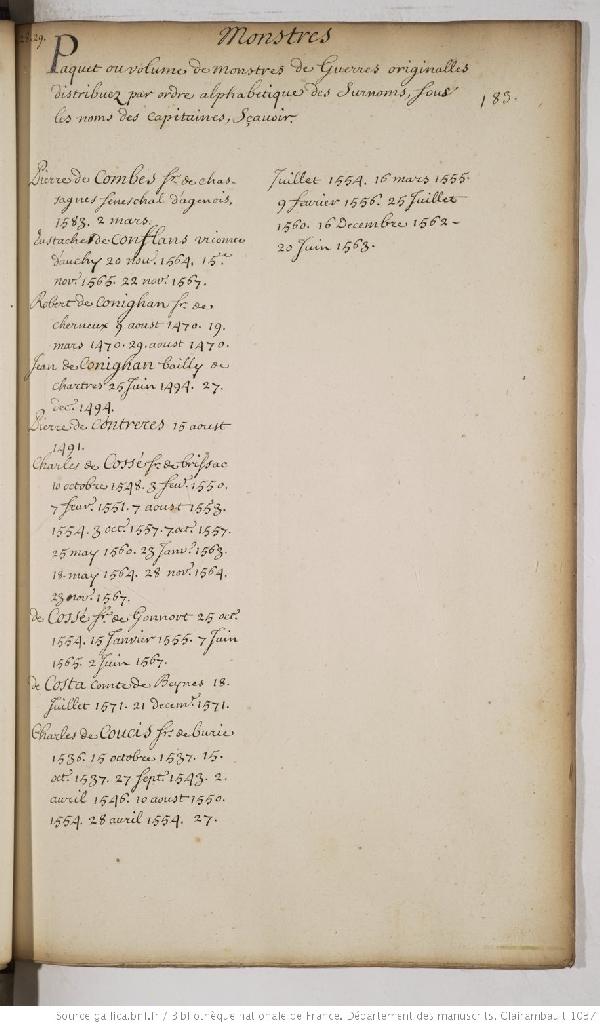 Monstres
29.
Paquet ou volume de monstres de Guerres originalles
distribuez par ordre alphabetique des Surnoms, sous
les noms des capitaines, Sçavoir.
183.
Pierre de Combes sr. de chas-
sagnes seneschal dagenois,
1583. 2 mars.
Eustache de Conflans viconte
dauchy 20 nov.e 1564. 15.
nov.e 1565. 22 nov.e 1567.
Robert de Conighan sr. de
cherveux 9 aoust 1470. 19.
mars 1470. 29. aoust 1470.
Jean de Conighan bailly de
chartres 25 Juin 1494. 27.
dec.e 1494.
Pierre de Contreres 15 aoust
1491.
Charles de Cossé sr. de brissac
10 octobre 1548. 3 fev.r 1550.
7 fevr. 1551. 7 aoust 1553.
1554. 3 oct.e 1557. 7 oct.e 1557.
25 may 1560. 23 Janv.r 1563.
18. may 1564. 28 nov.e 1564.
23 nov.e 1567.
de Cossé sr. de Gonnort 25 oct.e
1554. 15 Janvier 1555. 7 Juin
1565. 2 Juin 1567.
de Costa Comte de Beynes 18.
Juillet 1571. 21 decem.e 1571.
Charles de Coucis sr. de burie
1536. 15 octobre 1537. 15.
oct.e 1537. 27 sept.e 1543. 2.
avril 1546. 10 aoust 1550.
1554. 28 avril 1554. 27.
Juillet 1554. 16 mars 1555.
9 fevrier 1556. 25 Juillet
1560. 16 Decembre 1562-
20 Juin 1563.
Source gallica.bnf.fr / Bibliothèque nationale de France. Département des manuscrits. Clairambault 1087